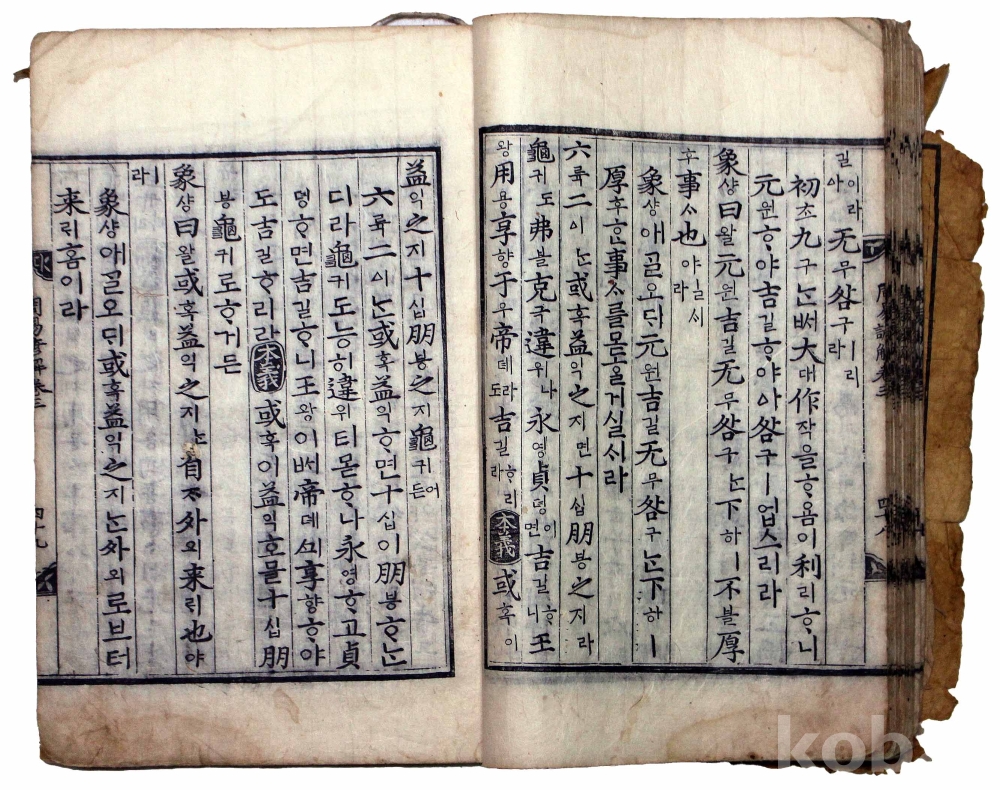 길이라아 无무咎구ㅣ리라
初초九구ᄂᆞᆫᄡᅥ大대作작을ᄒᆞ욤이利리ᄒᆞ니
元원ᄒᆞ야吉길ᄒᆞ야아咎구ㅣ업스리라
象샹曰왈元원吉길无무咎구ᄂᆞᆫ下하ㅣ不블厚
후事ᄉᆞ也야ㅣ실ᄉᆡ라
象샹애ᄀᆞᆯ오ᄃᆡ元원吉길无무咎구ᄂᆞᆫ下하ㅣ
厚후ᄒᆞᆫ事ᄉᆞ를몯ᄒᆞᆯ거실ᄉᆡ라
六륙二이ᄂᆞᆫ或혹益익之지면十십朋붕之지라
龜귀도弗블克극違위나永영貞뎡이면吉길ᄒᆞ니王
왕用용享향于우帝뎨라도吉길ᄒᆞ리라本義或혹이
益익之지十십朋붕之지龜귀어든
六륙二이ᄂᆞᆫ或혹益익ᄒᆞ면十십이朋붕ᄒᆞᄂᆞᆫ
디라龜귀도능히違위티몯ᄒᆞ나永영ᄒᆞ고貞
뎡ᄒᆞ면吉길ᄒᆞ니王왕이ᄡᅥ帝뎨ᄭᅴ享향ᄒᆞ야
도吉길ᄒᆞ리라本義或혹이益익호ᄃᆡ十십朋
붕龜귀로ᄒᆞ거든
象샹曰왈或혹益익之지ᄂᆞᆫ自ᄌᆞ外외來ᄅᆡ也야
ㅣ라
象샹애ᄀᆞᆯ오ᄃᆡ或혹益익之지ᄂᆞᆫ外외로브터
來ᄅᆡ홈이라
周易諺解卷三 四十九
kob